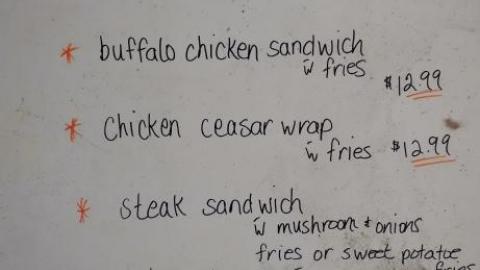 * buffalo chicken sandwich
w̄ fries
$12.99
* Chicken ceasar wrap
w̄ fries $12.99
* steak sandwich
w̄ mushroom & onions
fries or sweet potatoe
fries